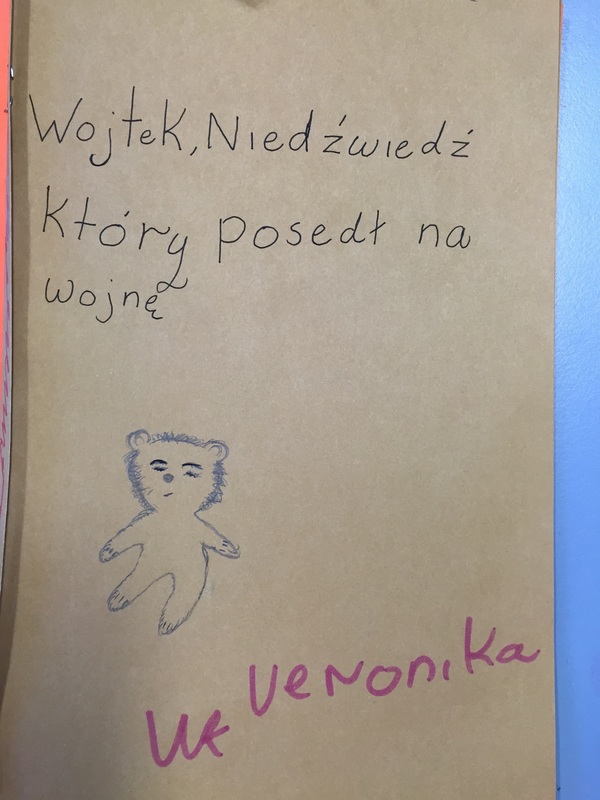 Wojtek, Niedźwiedź
Który posedł na
wojnę
Veronika